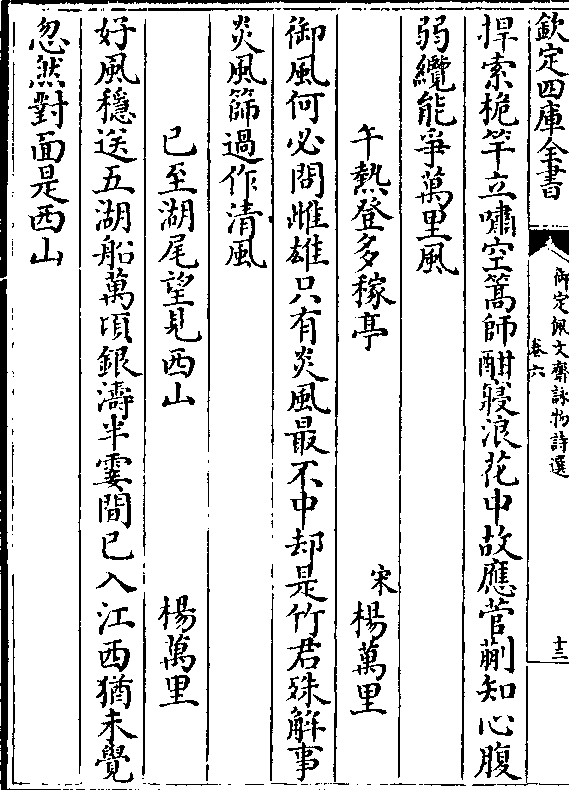 欽定四庫全書
御定佩文齋詠物詩選
卷六
十三
捍索桅竿立嘯空篙師酣寢浪花中故應菅蒯知心腹
弱纜能爭萬里風
午熱登多稼亭
宋楊萬里
御風何必問雌雄只有炎風最不中却是竹君殊解事
炎風篩過作清風
已至湖尾望見西山
楊萬里
好風穩送五湖船萬頃銀濤半霎間已入江西猶未覺
忽然對面是西山